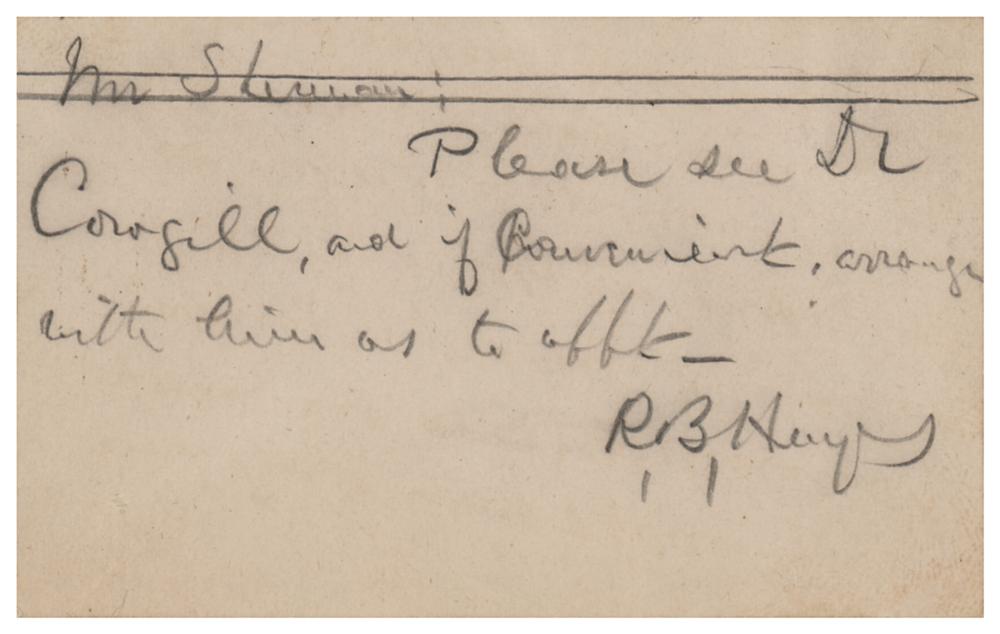 Mr Sherman;
Please see Dr
Cowgill, and if Convenient, arrange
with him as to appt—
R.B. Hayes